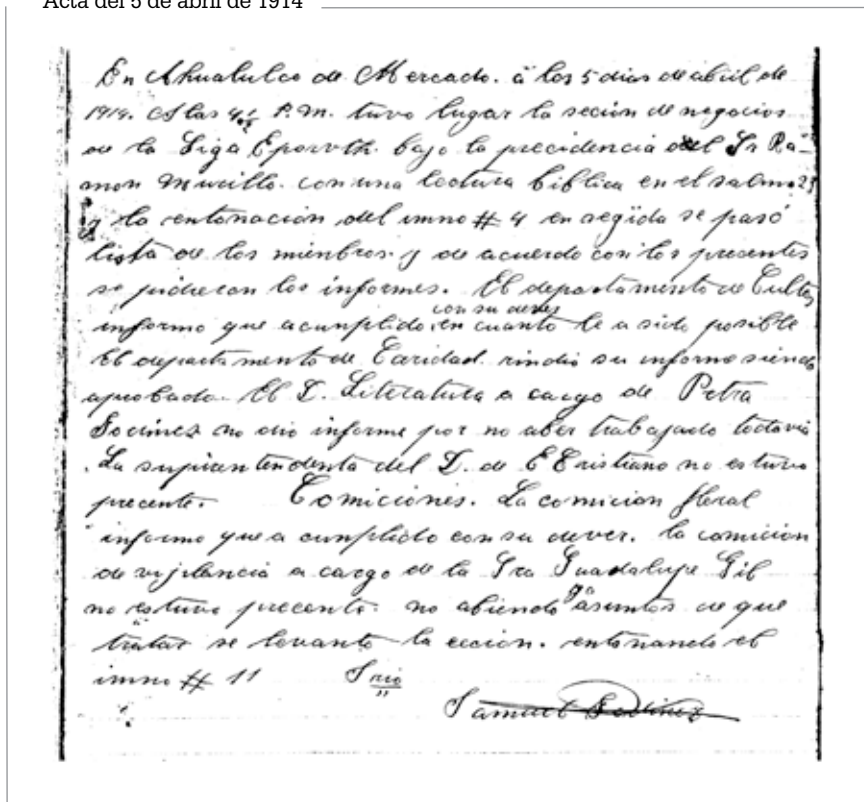 Acta del 5 de abril de 1914
En Ahualulco de Mercado. á los 5 dias de abril de
1914. A las 4½ P.M. tuvo lugar la seción de negocios
de la Liga Eporvth. bajo la precidencia del Sr Ra-
mon Murillo. con una lectura biblica en el salmo 23
y la entonación del imno # 4 en segida se pasó
lista de los mienbros. y de acuerdo con los precentes
se pidieron los informes. El departamento de Cultos
con su dever
informo que a cunplido en cuanto le a sido posible
El departamento de Caridad. rindio su informe siendo
aprobado. El D. Literatura a cargo de Petra
Godinez no dio informe por no aber trabajado todavia
. La supirentendenta del D. de E Cristiano no estuvo
precente. Comiciones. La comicion floral
informo que a cunplido con su dever. la comicion
de vijilancia a cargo de la Sra Guadalupe Gil
no estuvo precente. no abiendo asuntos de que
tratar se levanto la cecion. entonando el
imno # 11 Srio
Samuel Godinez